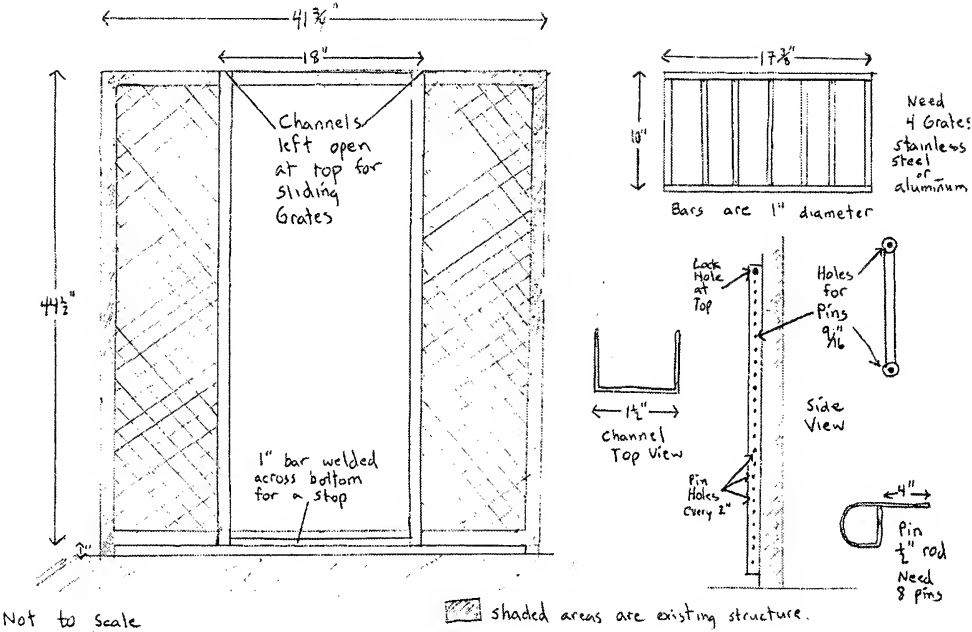 41 3/4"
18"
Channels
left open
at top for
sliding
Grates
44 1/2"
1" bar welded
across bottom
for a stop
1"
Not to scale
17 3/8"
10"
Need
4 Grates
stainless
steel
or
aluminum
Bars are 1" diameter
Lock
Hole
at
Top
Holes
for
Pins
9/16"
1 1/2"
Channel
Top View
Side
View
Pin
Holes
Every 2"
4"
Pin
1/2" rod
Need
8 pins
shaded areas are existing structure.